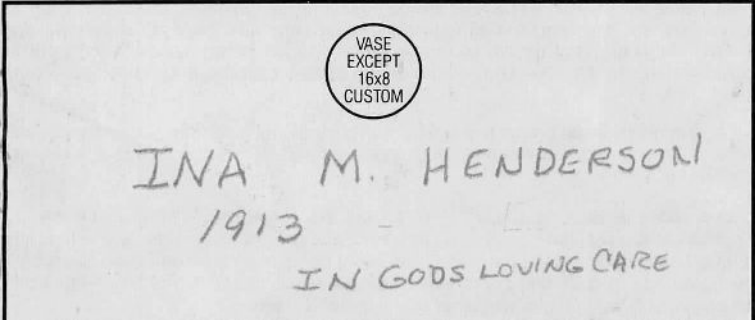 VASE
EXCEPT
16x8
CUSTOM
INA M. HENDERSON
1913 -
IN GODS LOVING CARE